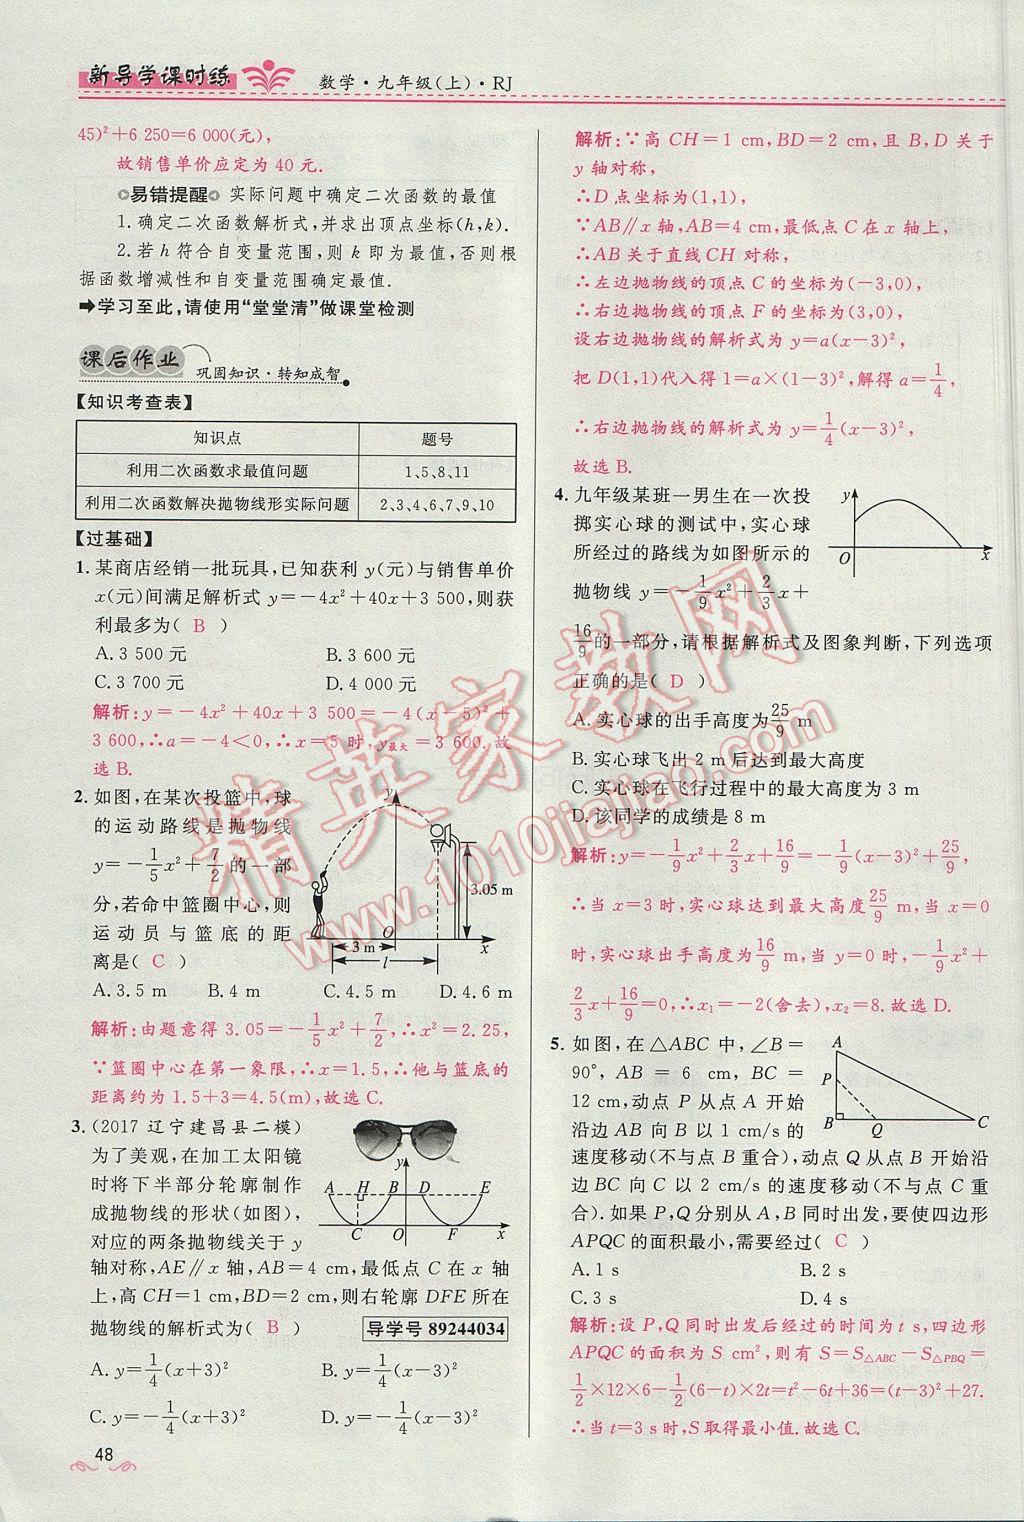 新导学课时练
数学·九年级(上)·RJ
45)²+6 250=6 000(元),
故销售单价应定为 40 元.
易错提醒 实际问题中确定二次函数的最值
1.确定二次函数解析式,并求出顶点坐标(h,k).
2.若 h 符合自变量范围,则 k 即为最值,否则根
据函数增减性和自变量范围确定最值.
➡学习至此,请使用“堂堂清”做课堂检测
课后作业 巩固知识·转知成智
【知识考查表】
知识点 题号
利用二次函数求最值问题 1、5、8、11
利用二次函数解决抛物线形实际问题 2、3、4、6、7、9、10
【过基础】
1.某商店经销一批玩具,已知获利 y(元)与销售单价
x(元)间满足解析式 y=-4x²+40x+3 500,则获
利最多为( B )
A.3 500 元 B.3 600 元
C.3 700 元 D.4 000 元
解析:y=-4x²+40x+3 500=-4(x-5)²+
3 600,∴a=-4<0,∴x=5 时,y最大=3 600.故
选 B.
2.如图,在某次投篮中,球
的运动路线是抛物线
y=-1/5x²+7/2的一部
分,若命中篮圈中心,则
运动员与篮底的距
离是( C )
y
3.05 m
O
x
3 m
l
A.3.5 m B.4 m C.4.5 m D.4.6 m
解析:由题意得 3.05=-1/5x²+7/2,∴x²=2.25,
∵篮圈中心在第一象限,∴x=1.5,∴他与篮底的
距离约为 1.5+3=4.5(m),故选 C.
3.(2017 辽宁建昌县二模)
为了美观,在加工太阳镜
时将下半部分轮廓制作
成抛物线的形状(如图),
对应的两条抛物线关于 y
轴对称,AE∥x 轴,AB=4 cm,最低点 C 在 x 轴
上,高 CH=1 cm,BD=2 cm,则右轮廓 DFE 所在
抛物线的解析式为( B ) 导学号 89244034
y
A H B D E
C O F x
A.y=1/4(x+3)² B.y=1/4(x-3)²
C.y=-1/4(x+3)² D.y=-1/4(x-3)²
48
解析:∵高 CH=1 cm,BD=2 cm,且 B,D 关于
y 轴对称,
∴D 点坐标为(1,1),
∵AB∥x 轴,AB=4 cm,最低点 C 在 x 轴上,
∴AB 关于直线 CH 对称,
∴左边抛物线的顶点 C 的坐标为(-3,0),
∴右边抛物线的顶点 F 的坐标为(3,0),
设右边抛物线的解析式为 y=a(x-3)²,
把 D(1,1)代入得 1=a×(1-3)²,解得 a=1/4,
∴右边抛物线的解析式为 y=1/4(x-3)²,
故选 B.
4.九年级某班一男生在一次投
掷实心球的测试中,实心球
所经过的路线为如图所示的
抛物线 y=-1/9x²+2/3x+
16/9的一部分,请根据解析式及图象判断,下列选项
正确的是( D )
y
O
x
A.实心球的出手高度为25/9 m
B.实心球飞出 2 m后达到最大高度
C.实心球在飞行过程中的最大高度为 3 m
D.该同学的成绩是 8 m
解析:y=-1/9x²+2/3x+16/9=-1/9(x-3)²+25/9,
∴当 x=3时,实心球达到最大高度25/9 m,当 x=0
时,实心球出手高度为16/9 m,当 y=0 时,-1/9x²+
2/3x+16/9=0,∴x₁=-2(舍去),x₂=8.故选 D.
5.如图,在△ABC 中,∠B=
90°,AB=6 cm,BC=
12 cm,动点 P 从点 A 开始
沿边 AB 向 B 以 1 cm/s 的
速度移动(不与点 B 重合),动点 Q 从点 B 开始沿
边 BC 向 C 以 2 cm/s 的速度移动(不与点 C 重
合).如果 P,Q 分别从 A,B 同时出发,要使四边形
APQC 的面积最小,需要经过( C )
A
P
B Q C
A.1 s B.2 s
C.3 s D.4 s
解析:设 P,Q 同时出发后经过的时间为 t s,四边形
APQC 的面积为 S cm²,则有 S=S△ABC-S△PBQ=
1/2×12×6-1/2(6-t)×2t=t²-6t+36=(t-3)²+27.
∴当 t=3 s时,S取得最小值.故选 C.
精英家教网
www.1010jiajiao.com